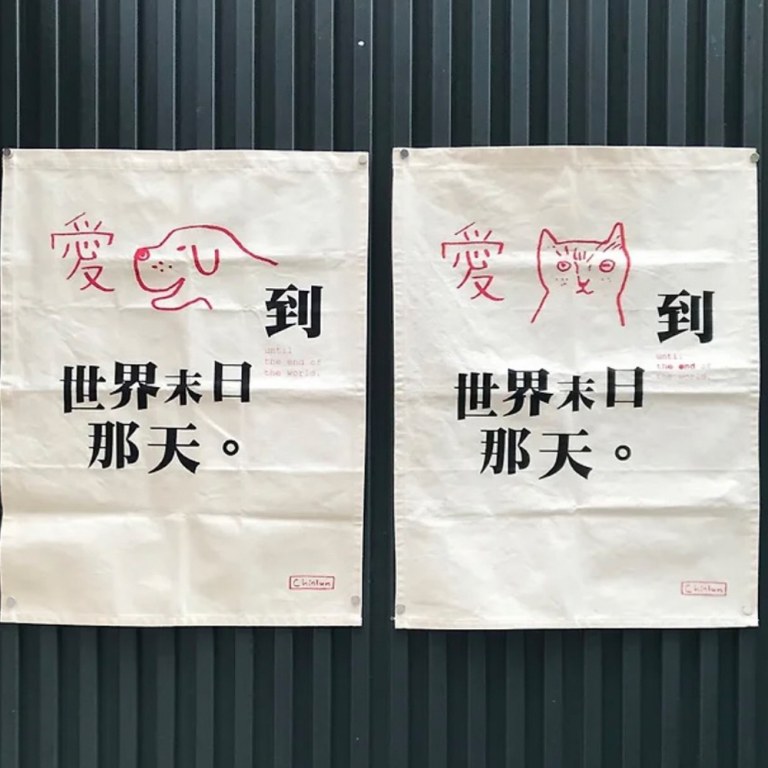 愛
到
until
the end of
the world.
世界末日
那天。
愛
到
until
the end of
the world.
世界末日
那天。